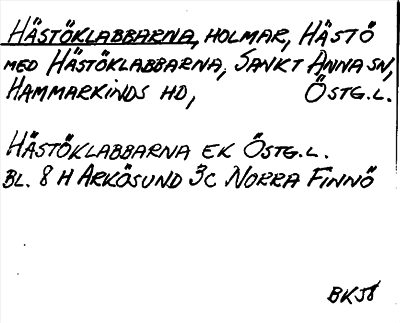 HÄSTÖKLABBARNA, HOLMAR, HÄSTÖ
MED HÄSTÖKLABBARNA, SANKT ANNA SN,
HAMMARKINDS HD, ÖSTG.L.
HÄSTÖKLABBARNA EK ÖSTG.L.
BL. 8 H ARKÖSUND 3C NORRA FINNÖ